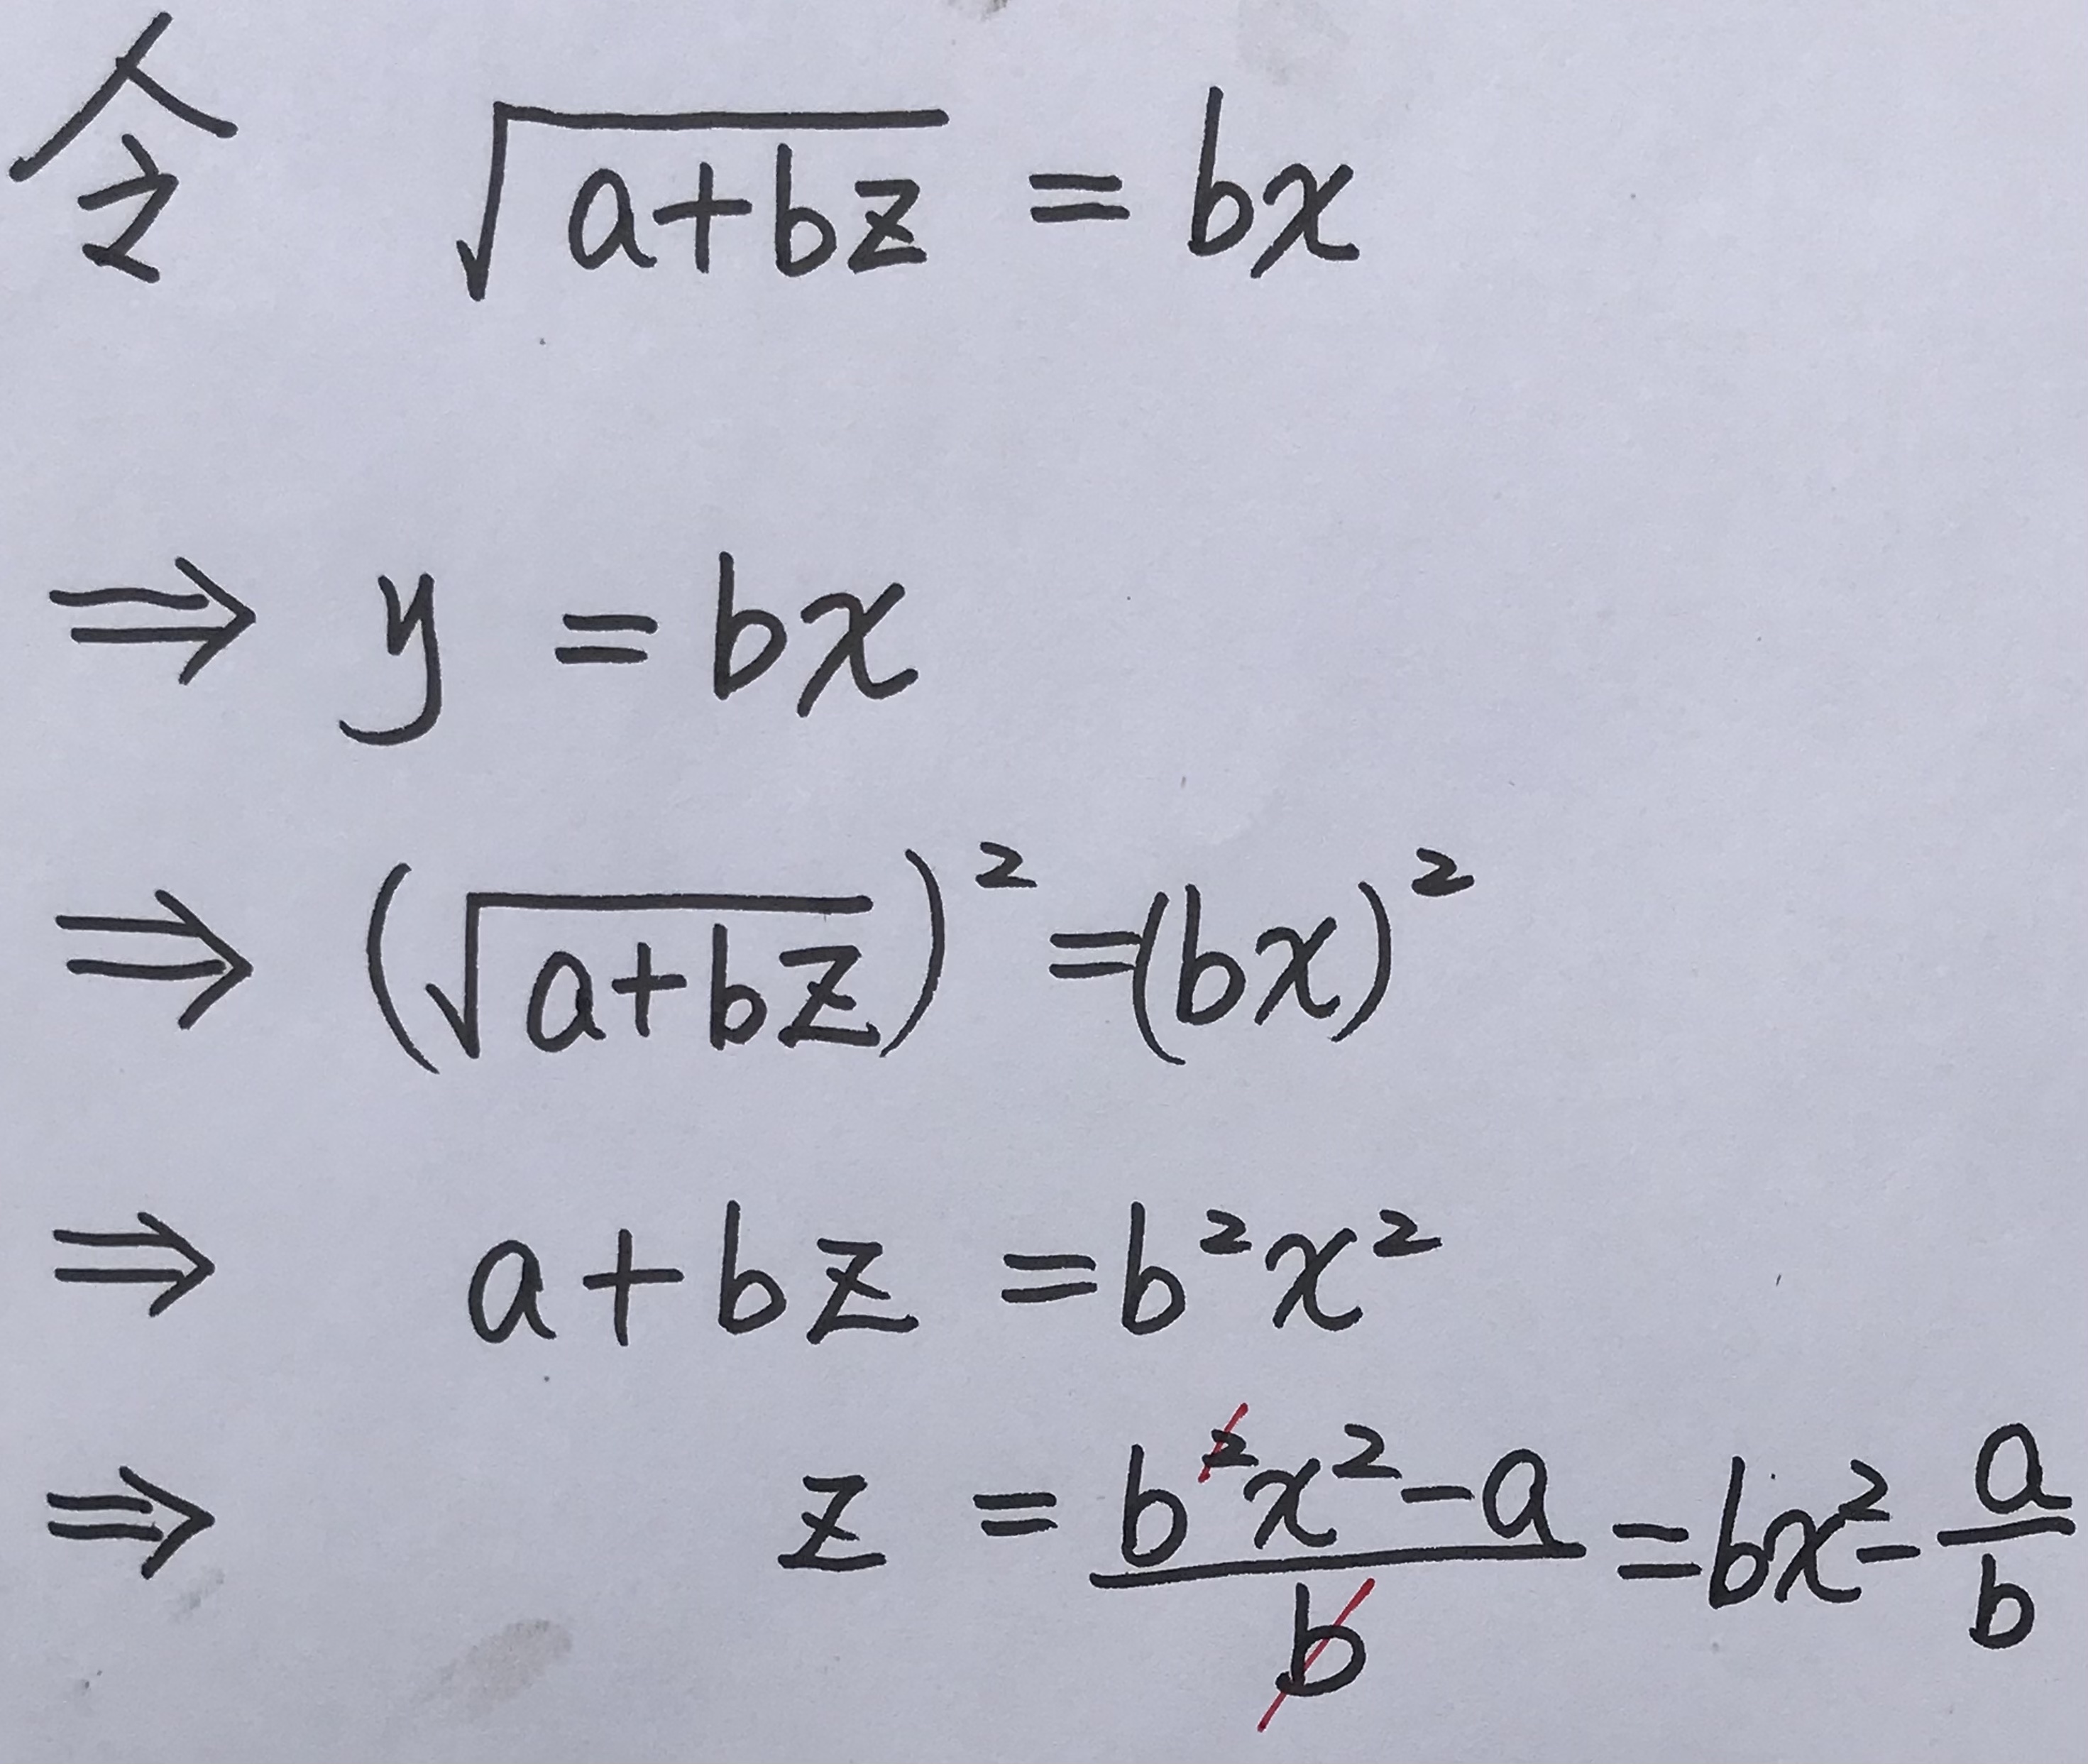 令 √(a+bz) = bx
⇒ y = bx
⇒ (√(a+bz))² = (bx)²
⇒ a+bz = b²x²
⇒ z = (b²x²-a)/b = bx² - a/b